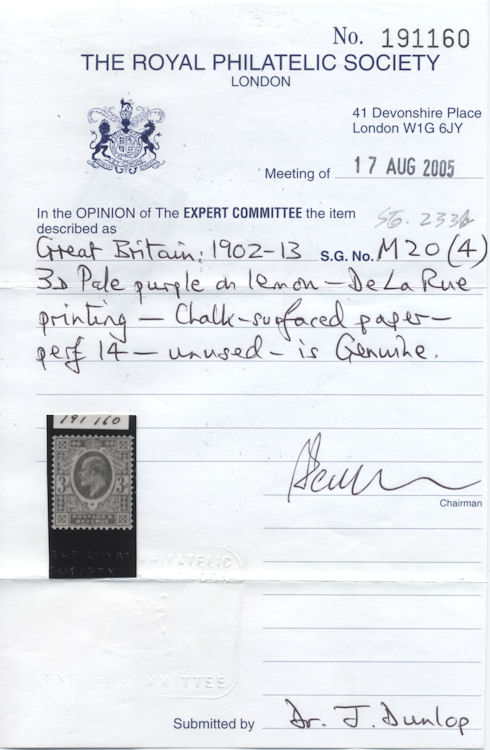 No. 191160
THE ROYAL PHILATELIC SOCIETY
LONDON
41 Devonshire Place
London W1G 6JY
Meeting of 17 AUG 2005
In the OPINION of The EXPERT COMMITTEE the item
described as
SG. 233b
Great Britain; 1902-13 S.G. No. M20(4)
3D Pale purple on lemon - De La Rue
printing - Chalk-surfaced paper -
perf 14 - unused - is Genuine.
191160
3 3
POSTAGE &
REVENUE
Chairman
THE ROYAL PHILATELIC
SOCIETY
COMMITTEE
Submitted by Dr. J. Dunlop